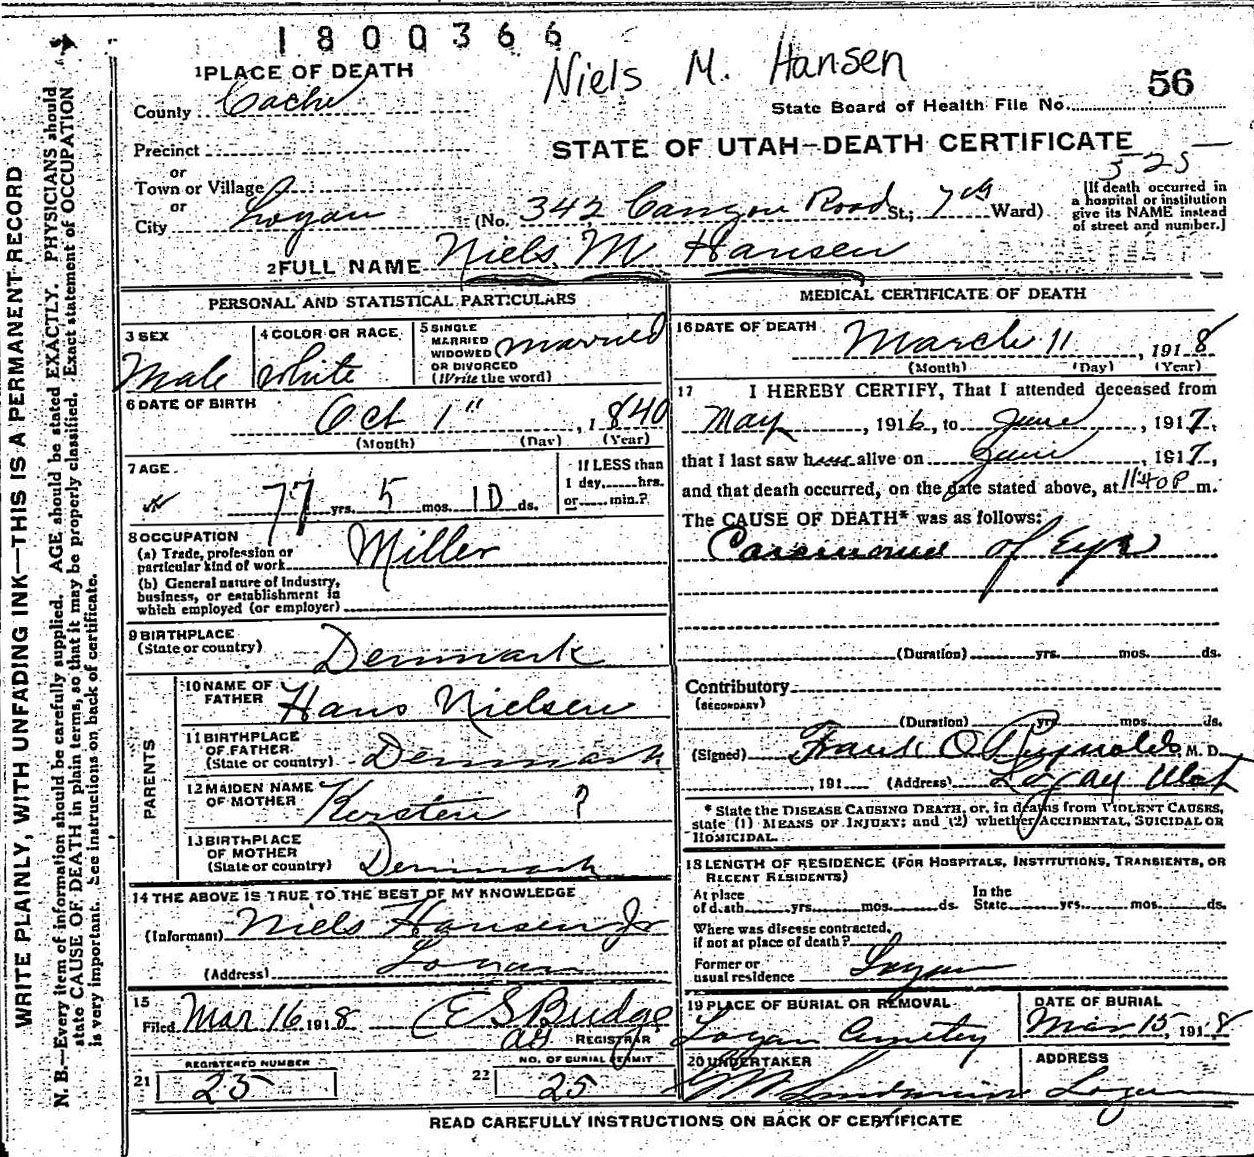 1800366
Niels M. Hansen
1 PLACE OF DEATH
County Cache
State Board of Health File No. 56
Precinct
STATE OF UTAH—DEATH CERTIFICATE
or
525
Town or Village
or
City Logan (No. 342 Canyon Road St.; 7th Ward)
[If death occurred in
a hospital or institution
give its NAME instead
of street and number.]
2 FULL NAME Niels M Hansen
PERSONAL AND STATISTICAL PARTICULARS
3 SEX
Male
4 COLOR OR RACE
White
5 SINGLE
MARRIED
WIDOWED
OR DIVORCED
(Write the word)
married
6 DATE OF BIRTH
Oct 1", 1840
(Month) (Day) (Year)
7 AGE
77 yrs. 5 mos. 10 ds.
If LESS than
1 day, hrs.
or min.?
8 OCCUPATION
(a) Trade, profession or
particular kind of work
Miller
(b) General nature of industry,
business, or establishment in
which employed (or employer)
9 BIRTHPLACE
(State or country)
Denmark
PARENTS
10 NAME OF
FATHER
Hans Nielsen
11 BIRTHPLACE
OF FATHER
(State or country)
Denmark
12 MAIDEN NAME
OF MOTHER
Kersten ?
13 BIRTHPLACE
OF MOTHER
(State or country)
Denmark
14 THE ABOVE IS TRUE TO THE BEST OF MY KNOWLEDGE
(Informant) Niels Hansen Jr
(Address) Logan
15
Filed Mar 16 1918 E S Budge
REGISTRAR
REGISTERED NUMBER
21 25
NO. OF BURIAL PERMIT
22 25
MEDICAL CERTIFICATE OF DEATH
16 DATE OF DEATH
March 11, 1918
(Month) (Day) (Year)
17 I HEREBY CERTIFY, That I attended deceased from
May, 1916, to June, 1917,
that I last saw h alive on June, 1917,
and that death occurred, on the date stated above, at 11:40 P m.
The CAUSE OF DEATH* was as follows:
Carcinoma of Eye
(Duration) yrs. mos. ds.
Contributory
(SECONDARY)
(Duration) yrs. mos. ds.
(Signed) Frank O Reynolds M. D.
, 191 (Address) Logan Utah
* State the DISEASE CAUSING DEATH, or, in deaths from VIOLENT CAUSES,
state (1) MEANS OF INJURY; and (2) whether ACCIDENTAL, SUICIDAL OR
HOMICIDAL.
18 LENGTH OF RESIDENCE (FOR HOSPITALS, INSTITUTIONS, TRANSIENTS, OR
RECENT RESIDENTS)
At place
of death yrs. mos. ds.
In the
State yrs. mos. ds.
Where was disease contracted,
if not at place of death?
Former or
usual residence Logan
19 PLACE OF BURIAL OR REMOVAL
Logan Cemetery
DATE OF BURIAL
Mar 15, 1918
20 UNDERTAKER
ADDRESS
Logan
READ CAREFULLY INSTRUCTIONS ON BACK OF CERTIFICATE
WRITE PLAINLY, WITH UNFADING INK—THIS IS A PERMANENT RECORD
N. B.—Every item of information should be carefully supplied. AGE should be stated EXACTLY. PHYSICIANS should
state CAUSE OF DEATH in plain terms, so that it may be properly classified. Exact statement of OCCUPATION
is very important. See instructions on back of certificate.